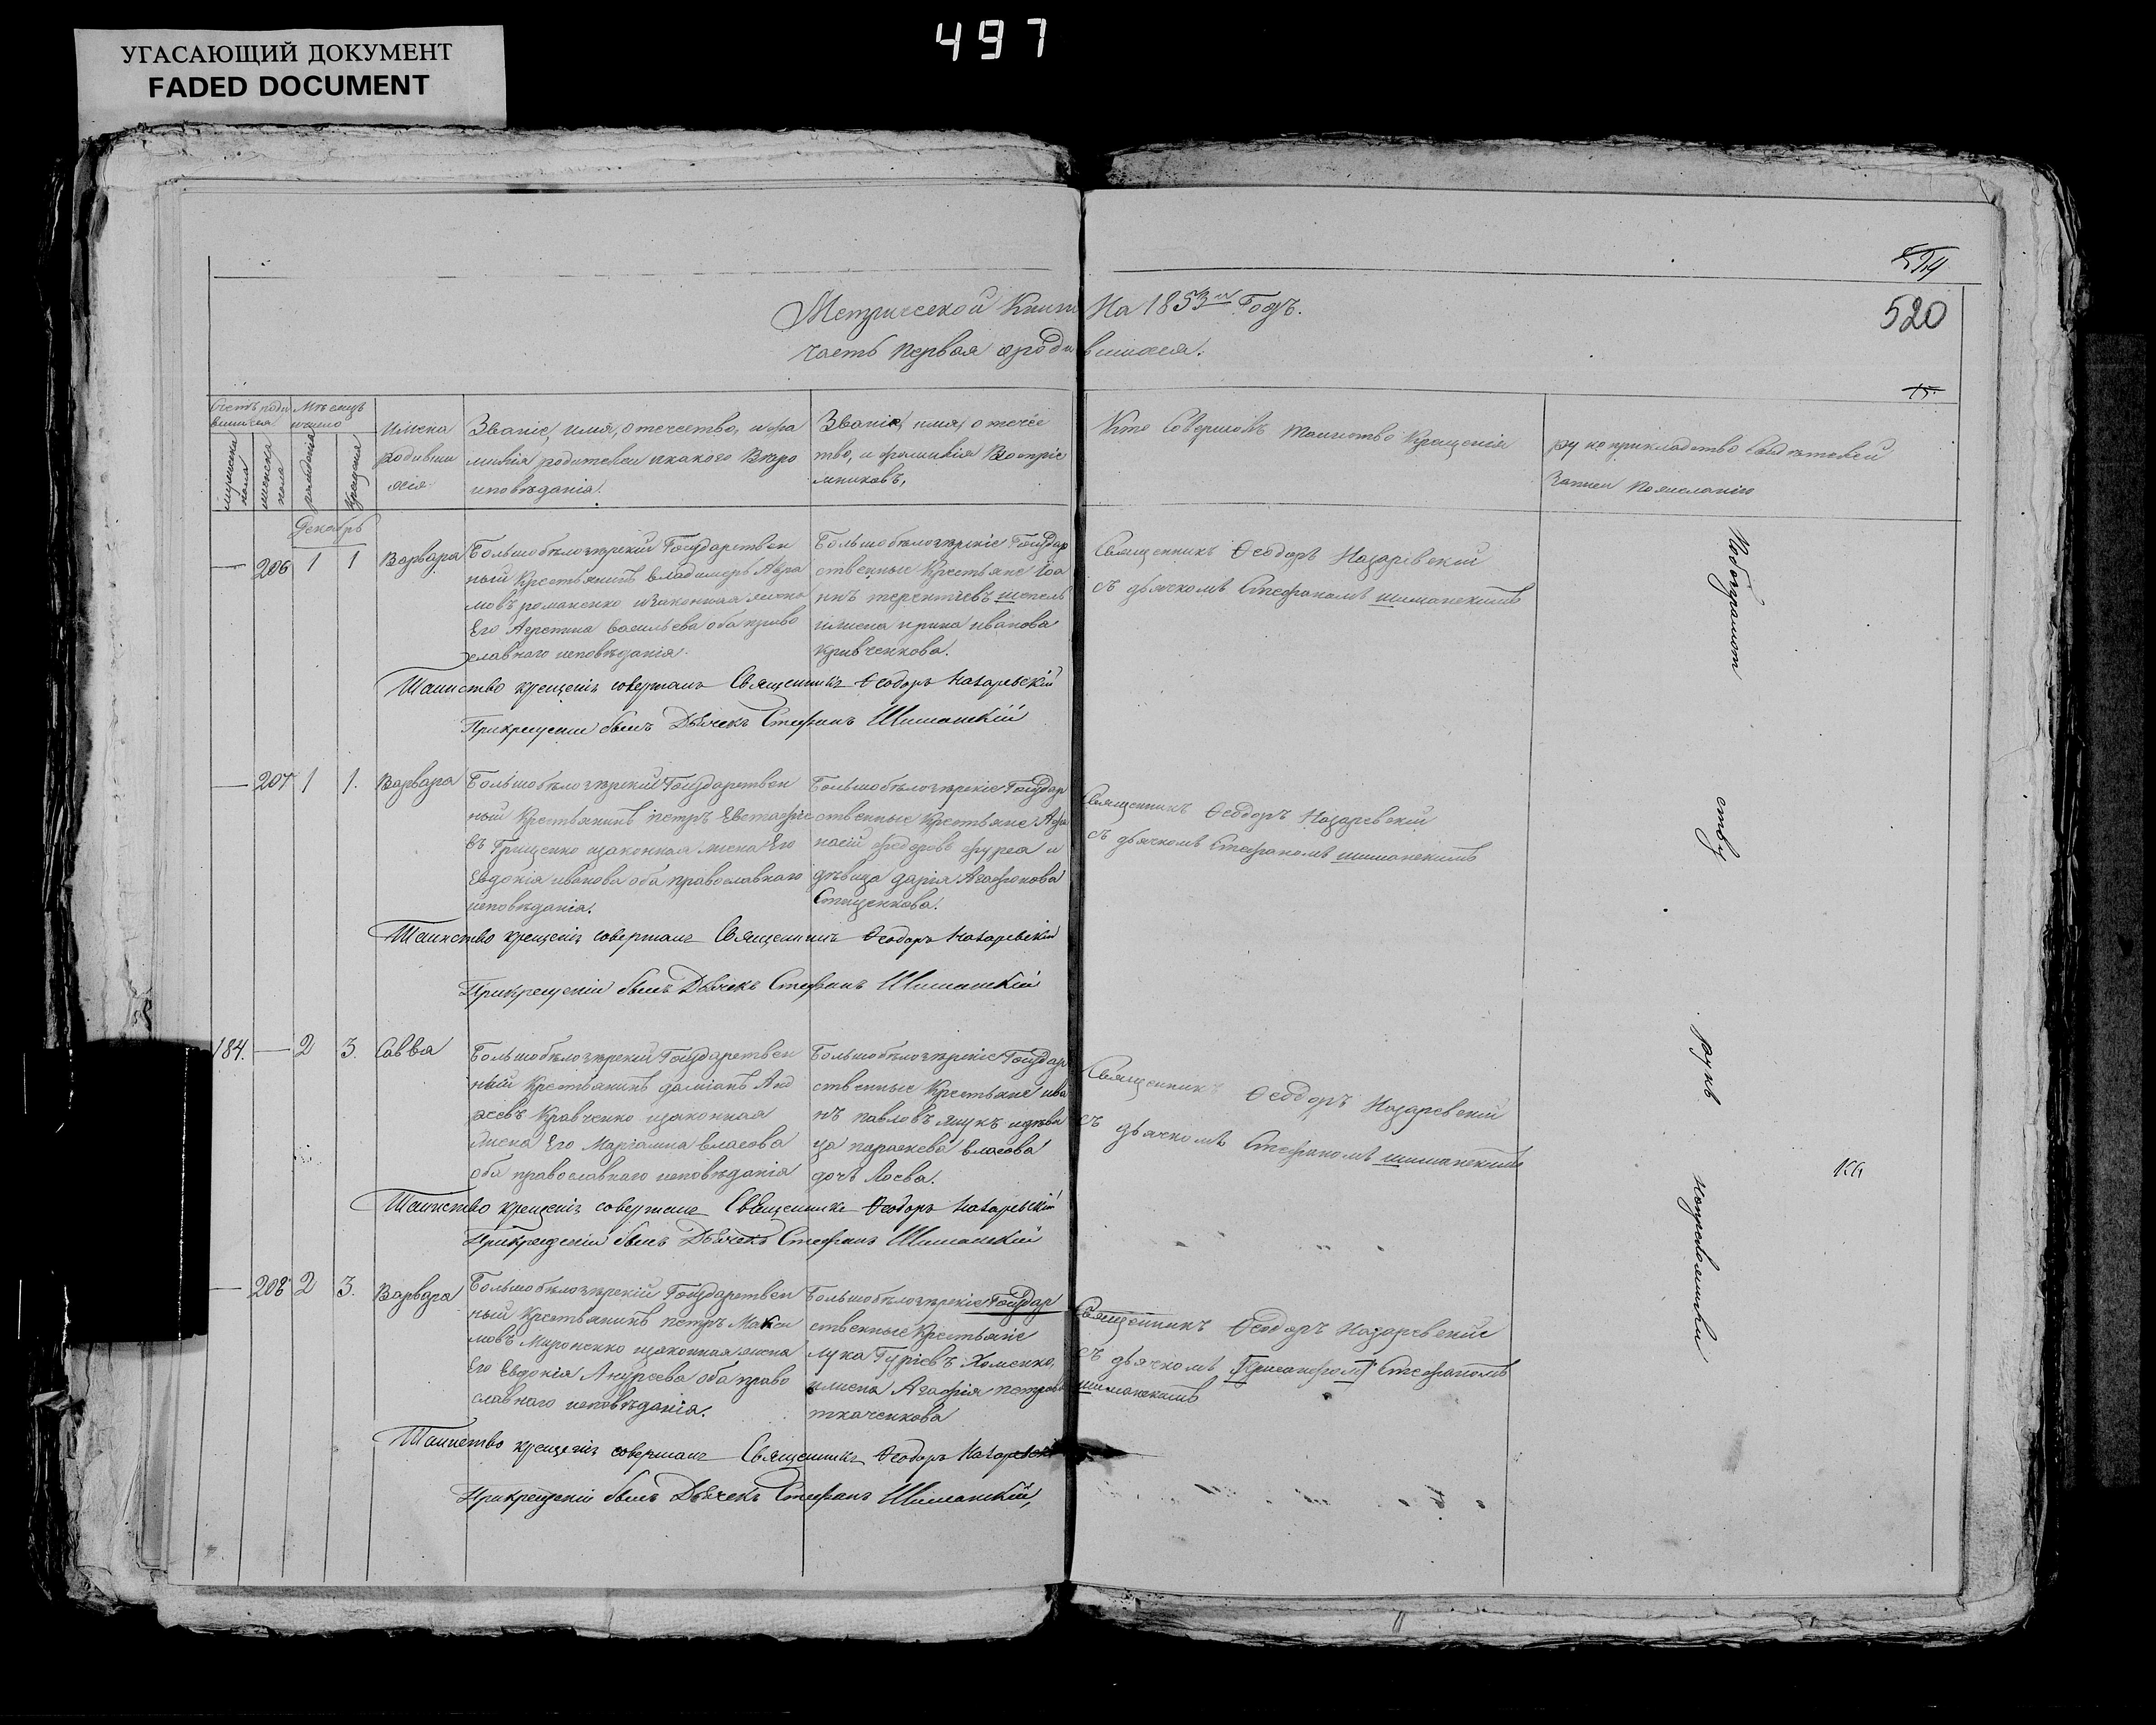 497
УГАСАЮЩИЙ ДОКУМЕНТ
FADED DOCUMENT
520
Метрической Книги На 1853й Годъ.
часть первая о родившихся.
15.
Счетъ роди
вшихся
мужеска
пола
женска
пола
Мѣсяцъ
и число
рождения
крещения
Имена
родивши
хся
Званіе, имя, отечество, и фа
милія родителей и какого Вѣро
исповѣданія.
Званіе, имя, отечес
тво, и фамилія Воспріе
мниковъ,
Кто Совершалъ таинство Крещенія
рукоприкладство Свидѣтелей
Записи по желанію
Декабрь
— 206 1 1 Варвара
Большобѣлозѣрскій Государствен
ный Крестьянинъ Владимеръ Авра
мовъ романенко изаконная жена
Его Агрепина Васильева оба право
славнаго исповѣданія.
Большобѣлозѣрскіе Государ
ственные Крестьяне Іоа
ннъ терентіевъ шепель
ижена ирина иванова
кривченкова.
Священникъ Ѳеодоръ Назаревскій
съ дьячкомъ Стефаномъ шиманскимъ
Таинство крещенія совершалъ Священникъ Ѳеодоръ Назаревскій
Прикрещеніи былъ Дьячекъ Стефанъ Шиманскій
— 207 1 1. Варвара
Большобѣлозѣрскій Государствен
ный Крестьянинъ петръ Евстафіе
въ Грищенко изаконная жена Его
Евдокія иванова оба православнаго
исповѣданія.
Большобѣлозѣрскіе Государ
ственные Крестьяне Афа
насій федоровъ фурса и
дѣвица дарія Агафонова
Стащенкова.
Священникъ Ѳеодоръ Назаревскій
съ дьячкомъ Стефаномъ шиманскимъ
Таинство крещенія совершалъ Священникъ Ѳеодоръ Назаревскій
Прикрещеніи былъ Дьячекъ Стефанъ Шиманскій
184. — 2 3. Савва
Большобѣлозѣрскій Государствен
ный Крестьянинъ даміанъ Анд
реевъ Кравченко изаконная
жена Его Маріамна власова
оба православнаго исповѣданія
Большобѣлозѣрскіе Государ
ственные Крестьяне ива
нъ павловъ ящукъ идѣви
ца параскева власова
дочь Лосева.
Священникъ Ѳеодоръ Назаревскій
съ дьячкомъ Стефаномъ шиманскимъ
Таинство крещенія совершалъ Священникъ Ѳеодоръ Назаревскій
Прикрещеніи былъ Дьячекъ Стефанъ Шиманскій
— 208 2 3. Варвара
Большобѣлозѣрскій Государствен
ный Крестьянинъ петръ Макси
мовъ Мироненко изаконная жена
Его Евдокія Андреева оба право
славнаго исповѣданія.
Большобѣлозѣрскіе Государ
ственные Крестьяне
лука Гуріевъ Хоменко,
ижена Агафія петрова
ткаченкова
Священникъ Ѳеодоръ Назаревскій
съ дьячкомъ Стефаномъ
шиманскимъ
Таинство крещенія совершалъ Священникъ Ѳеодоръ Назаревскі
Прикрещеніи былъ Дьячекъ Стефанъ Шиманскій,
Неограмот
ству
рукъ
неприложили